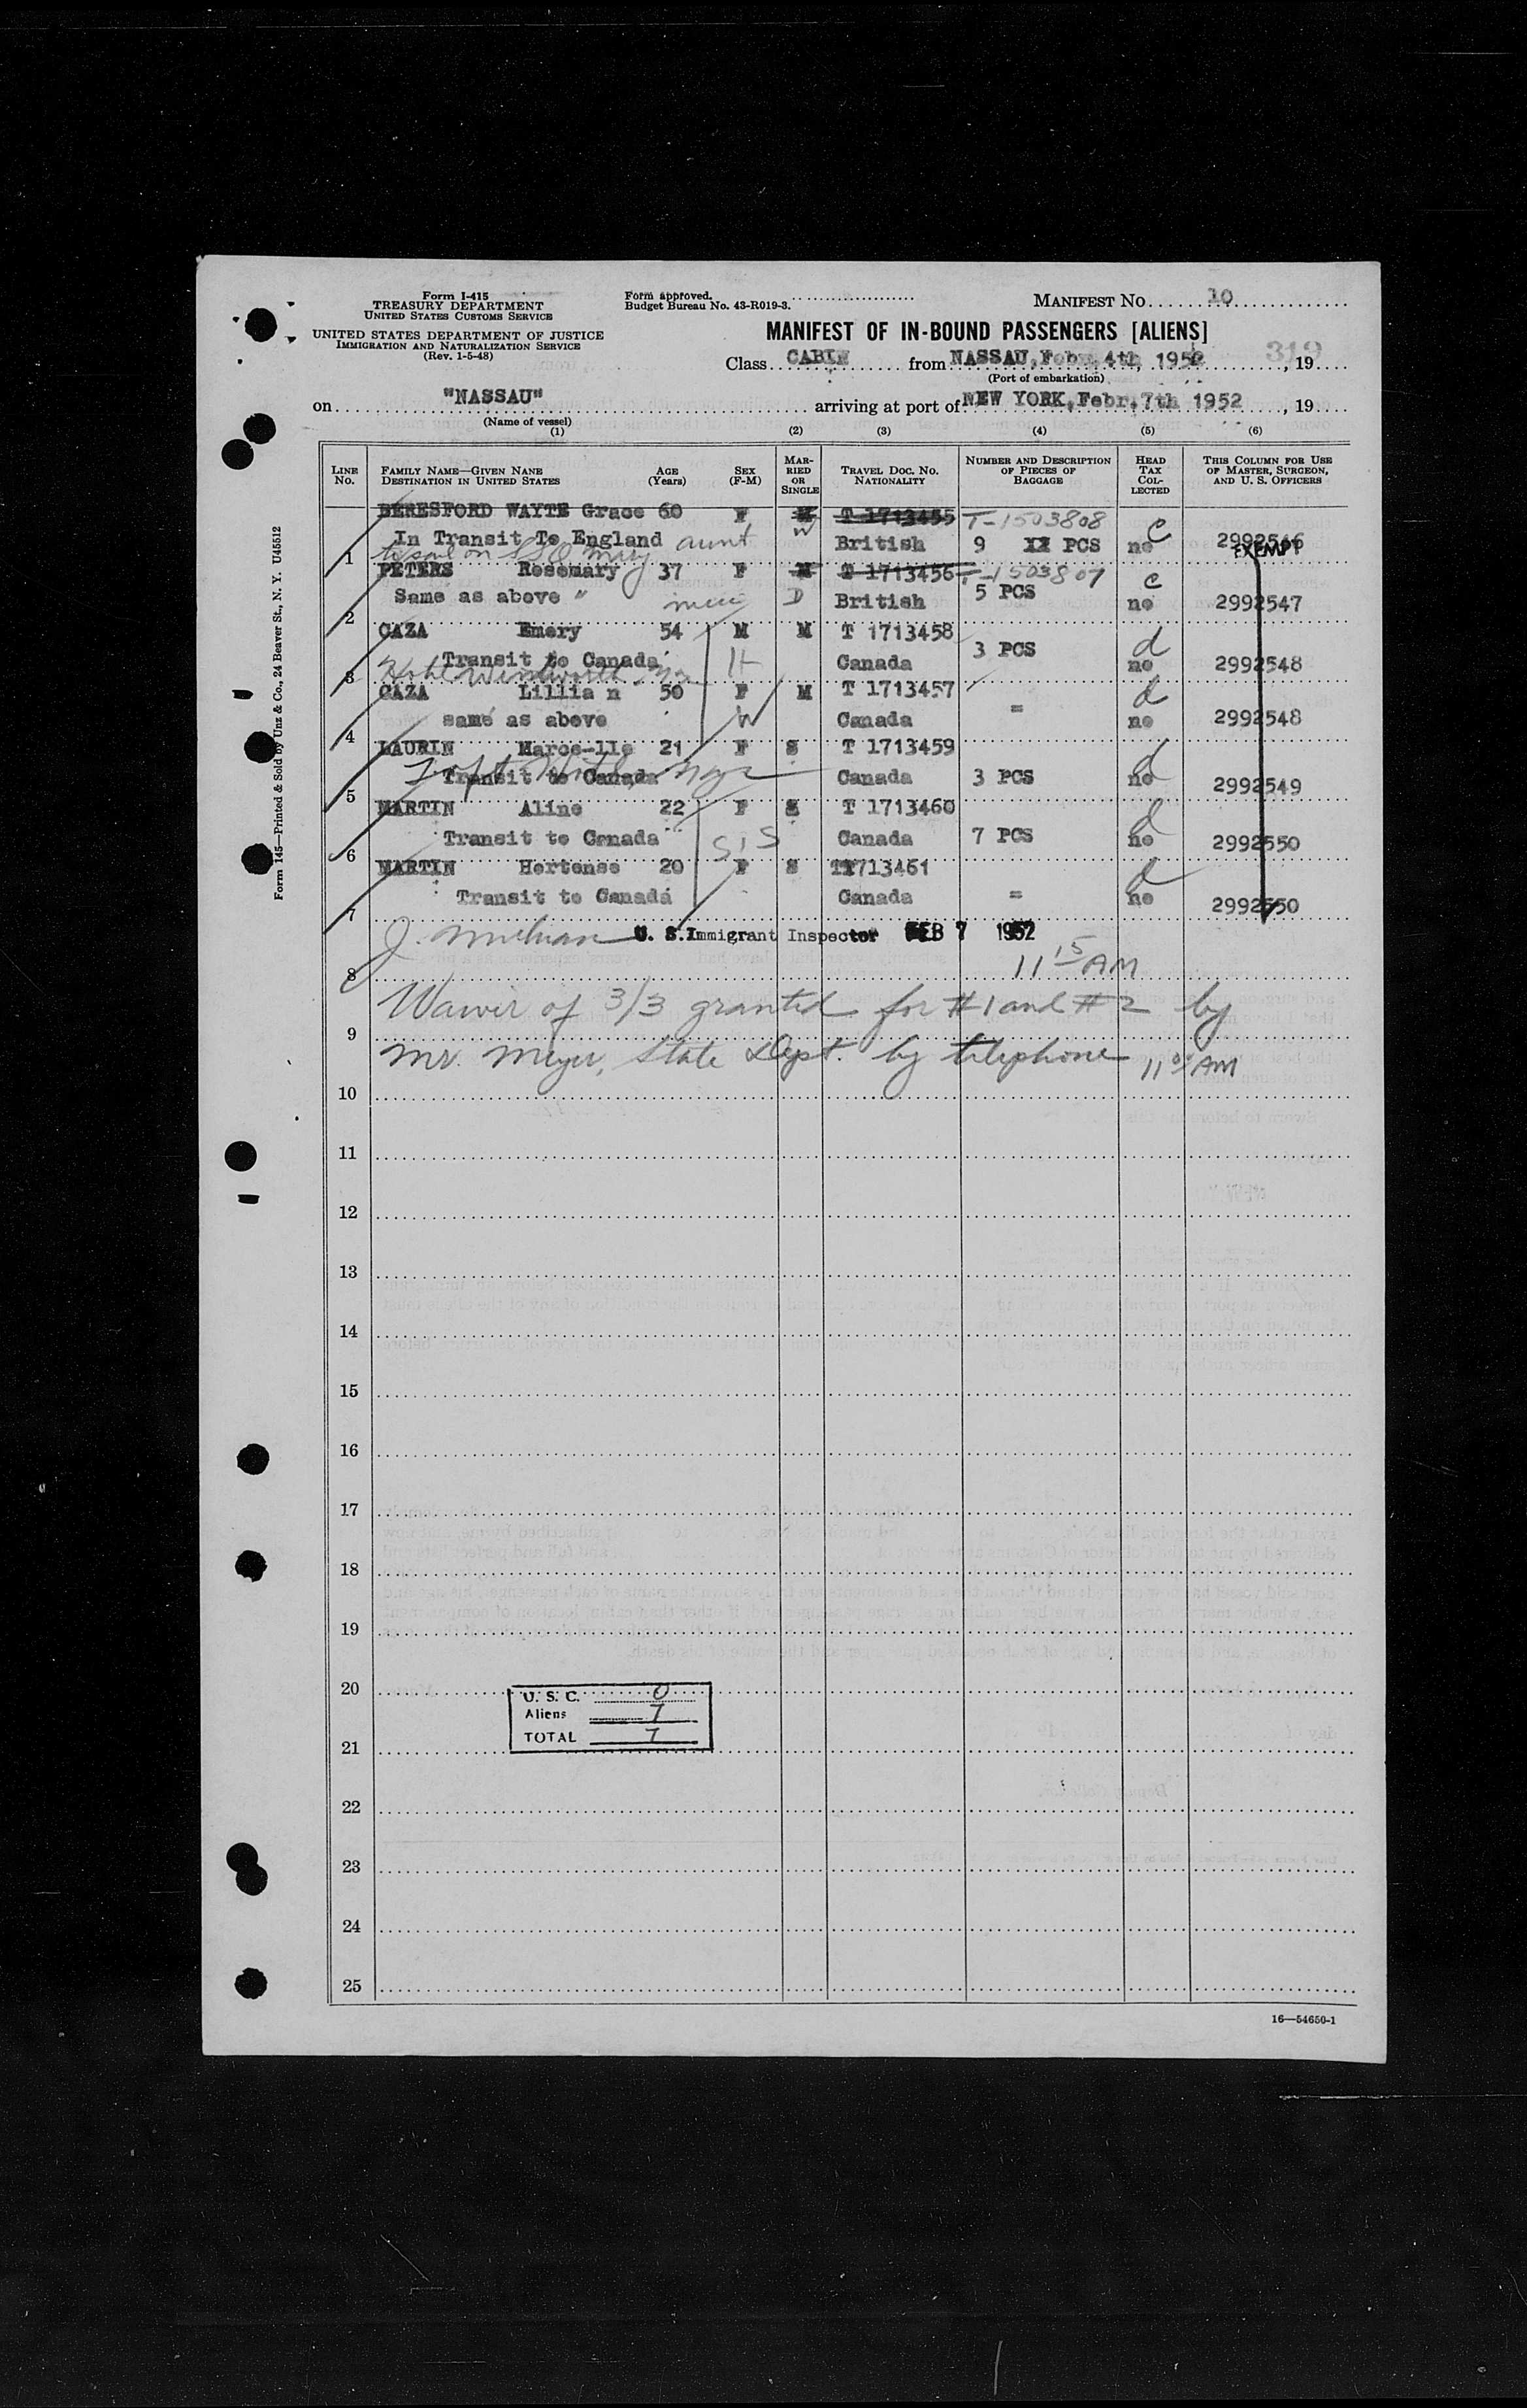 Form I-415
TREASURY DEPARTMENT
UNITED STATES CUSTOMS SERVICE
UNITED STATES DEPARTMENT OF JUSTICE
IMMIGRATION AND NATURALIZATION SERVICE
(Rev. 1-5-48)
Form approved.
Budget Bureau No. 43-R019-3.
MANIFEST NO. 10
MANIFEST OF IN-BOUND PASSENGERS [ALIENS]
319
Class CABIN from NASSAU, Febr. 4th, 1952, 19
(Port of embarkation)
on "NASSAU" arriving at port of NEW YORK, Febr, 7th 1952, 19
(Name of vessel)
(1) (2) (3) (4) (5) (6)
LINE NO.
FAMILY NAME—GIVEN NAME
DESTINATION IN UNITED STATES
AGE (Years)
SEX (F-M)
MARRIED OR SINGLE
TRAVEL DOC. NO. NATIONALITY
NUMBER AND DESCRIPTION OF PIECES OF BAGGAGE
HEAD TAX COLLECTED
THIS COLUMN FOR USE OF MASTER, SURGEON, AND U. S. OFFICERS
BERESFORD WAYTE Grace 60 F M T 1713455 T-1503808 c
W
In Transit To England aunt British 9 XX PCS no 2992546
EXEMPT
1 to sail on SS Q Mary
PETERS Rosemary 37 F M T 1713456 T-1503807 c
2 Same as above " D British 5 PCS no 2992547
CAZA Emery 54 M M T 1713458 d
Transit to Canada H Canada 3 PCS no 2992548
3 Hotel Wentworth
CAZA Lillian 50 F M T 1713457 d
4 same as above W Canada = no 2992548
LAURIN Marce-lle 21 F S T 1713459 d
5 Transit to Canada Canada 3 PCS no 2992549
MARTIN Aline 22 F S T 1713460 d
6 Transit to Canada SIS Canada 7 PCS no 2992550
MARTIN Hortense 20 F S T1713461 d
7 Transit to Canada Canada = no 2992550
U. S. Immigrant Inspector FEB 7 1952
8 11 15 AM
Waiver of 3/3 granted for #1 and #2 by
9
Mr. Meyer, State Dept. by telephone 11 05 AM
10
11
12
13
14
15
16
17
18
19
20
U. S. C. 0
Aliens 7
TOTAL 7
21
22
23
24
25
16—54650-1
Form 145—Printed & Sold by Unz & Co., 24 Beaver St., N. Y. U45512